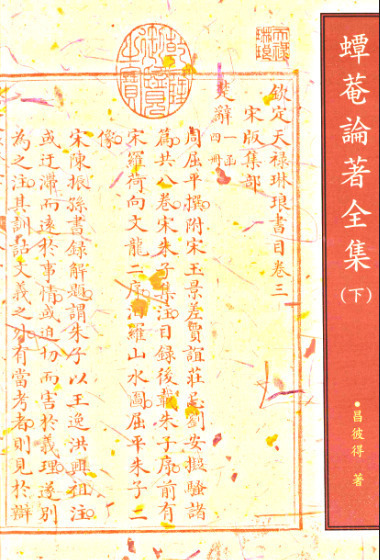 蟫菴論著全集
(下)
•昌彼得 著
欽定天祿琳琅書目卷三
宋版集部
楚辭 一函四冊
周屈平撰附宋玉景差賈誼莊忌劉安擬騷諸
篇共八卷宋朱子集注目錄後載朱子序前有
宋羅荷向文龍二序汨羅山水圖屈平朱子二
像
宋陳振孫書錄解題謂朱子以王逸洪興祖注
或迂滯而遠於事情或迫切而害於義理遂別
為之注其訓詁文義之外有當考者則見於辯
乾隆御覽之寶
天祿琳琅